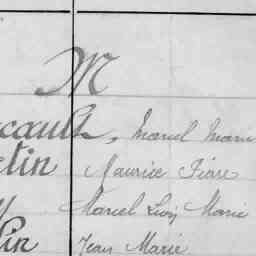 M
cault, Marcel Marie
tin Maurice Pierre
Marcel Léon Marie
lin Jean Marie